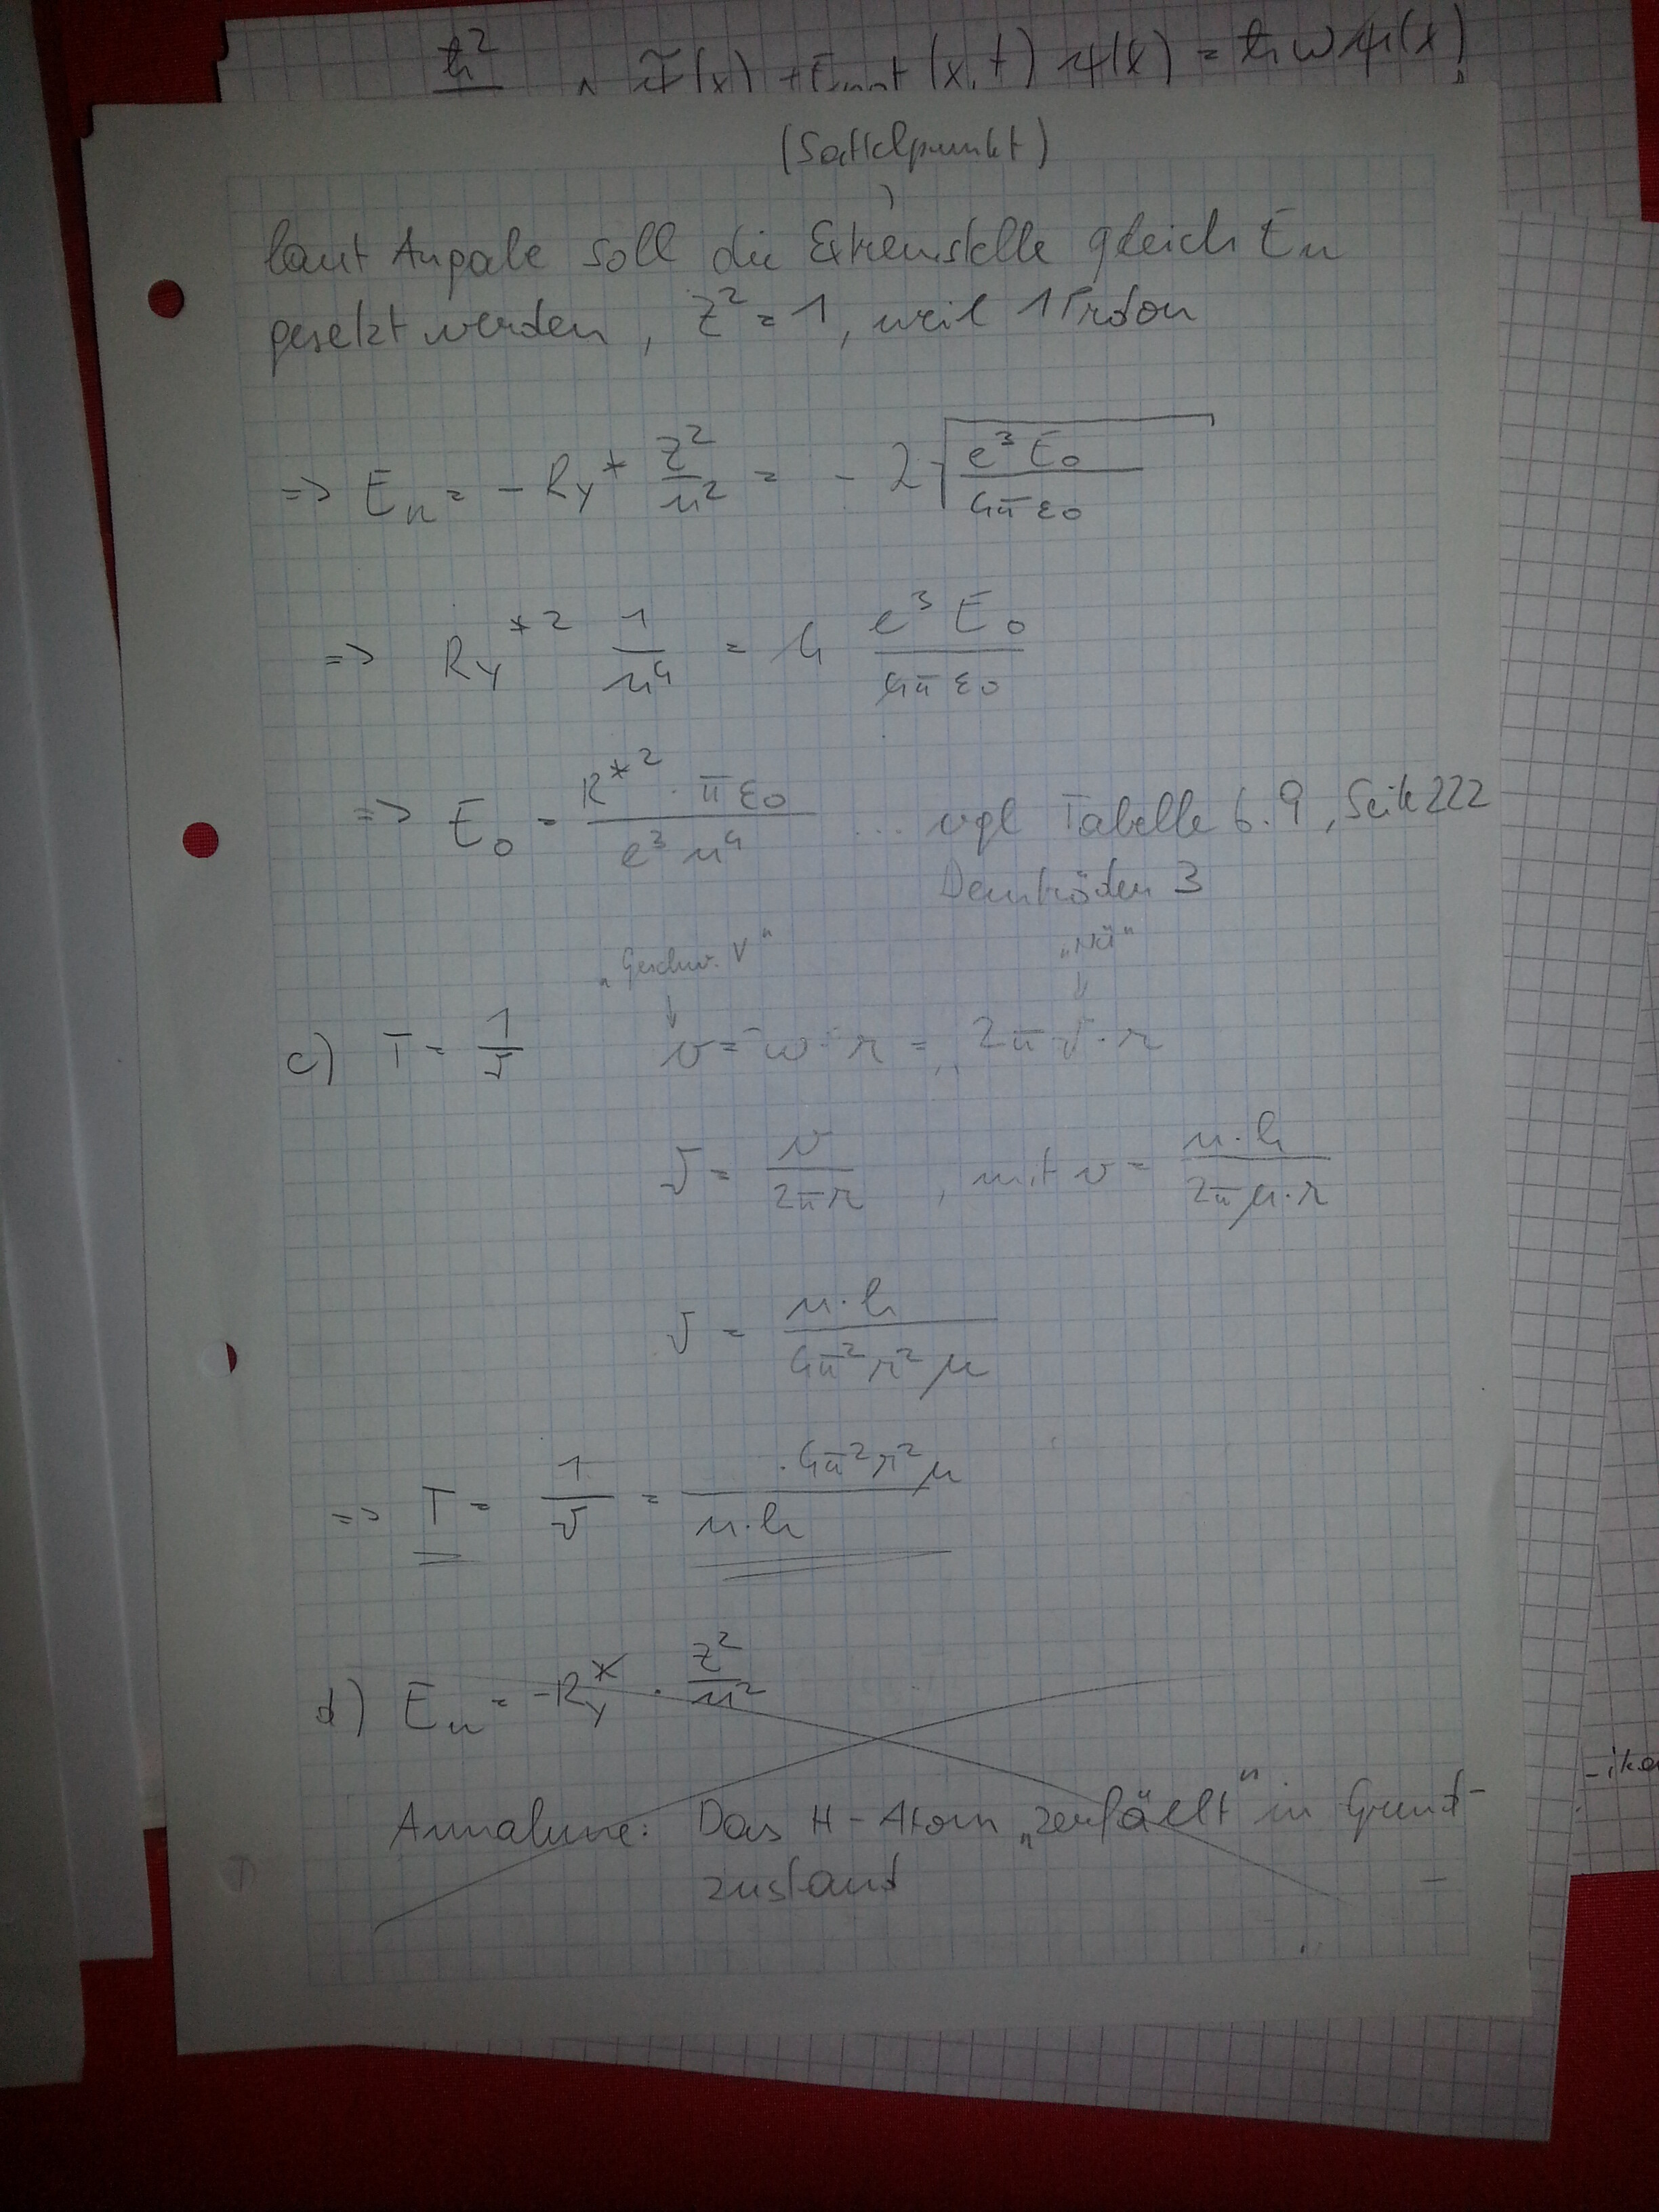 ħ²
(x) + Epot (x,t) ψ(x) = ħωψ(x)
(Sattelpunkt)
laut Angabe soll die Extremstelle gleich En
gesetzt werden, Z² = 1, weil 1 Proton
=> En = - Ry* Z²/n² = - 2 √(e³ E0 / 4π ε0)
=> Ry*² 1/n⁴ = 4 e³ E0 / 4π ε0
=> E0 = R*² · π ε0 / e³ n⁴ ... vgl Tabelle 6.9, Seite 222
Demtröder 3
„Geschw. V" „Nü"
↓ ↓
c) T = 1/ν v = ω · r = 2π ν · r
ν = v / 2π r , mit v = n·h / 2π μ · r
ν = n·h / 4π² r² μ
=> T = 1/ν = 4π² r² μ / n·h
d) En = - Ry* · Z²/n²
Annahme: Das H-Atom „zerfällt" in Grund-
zustand